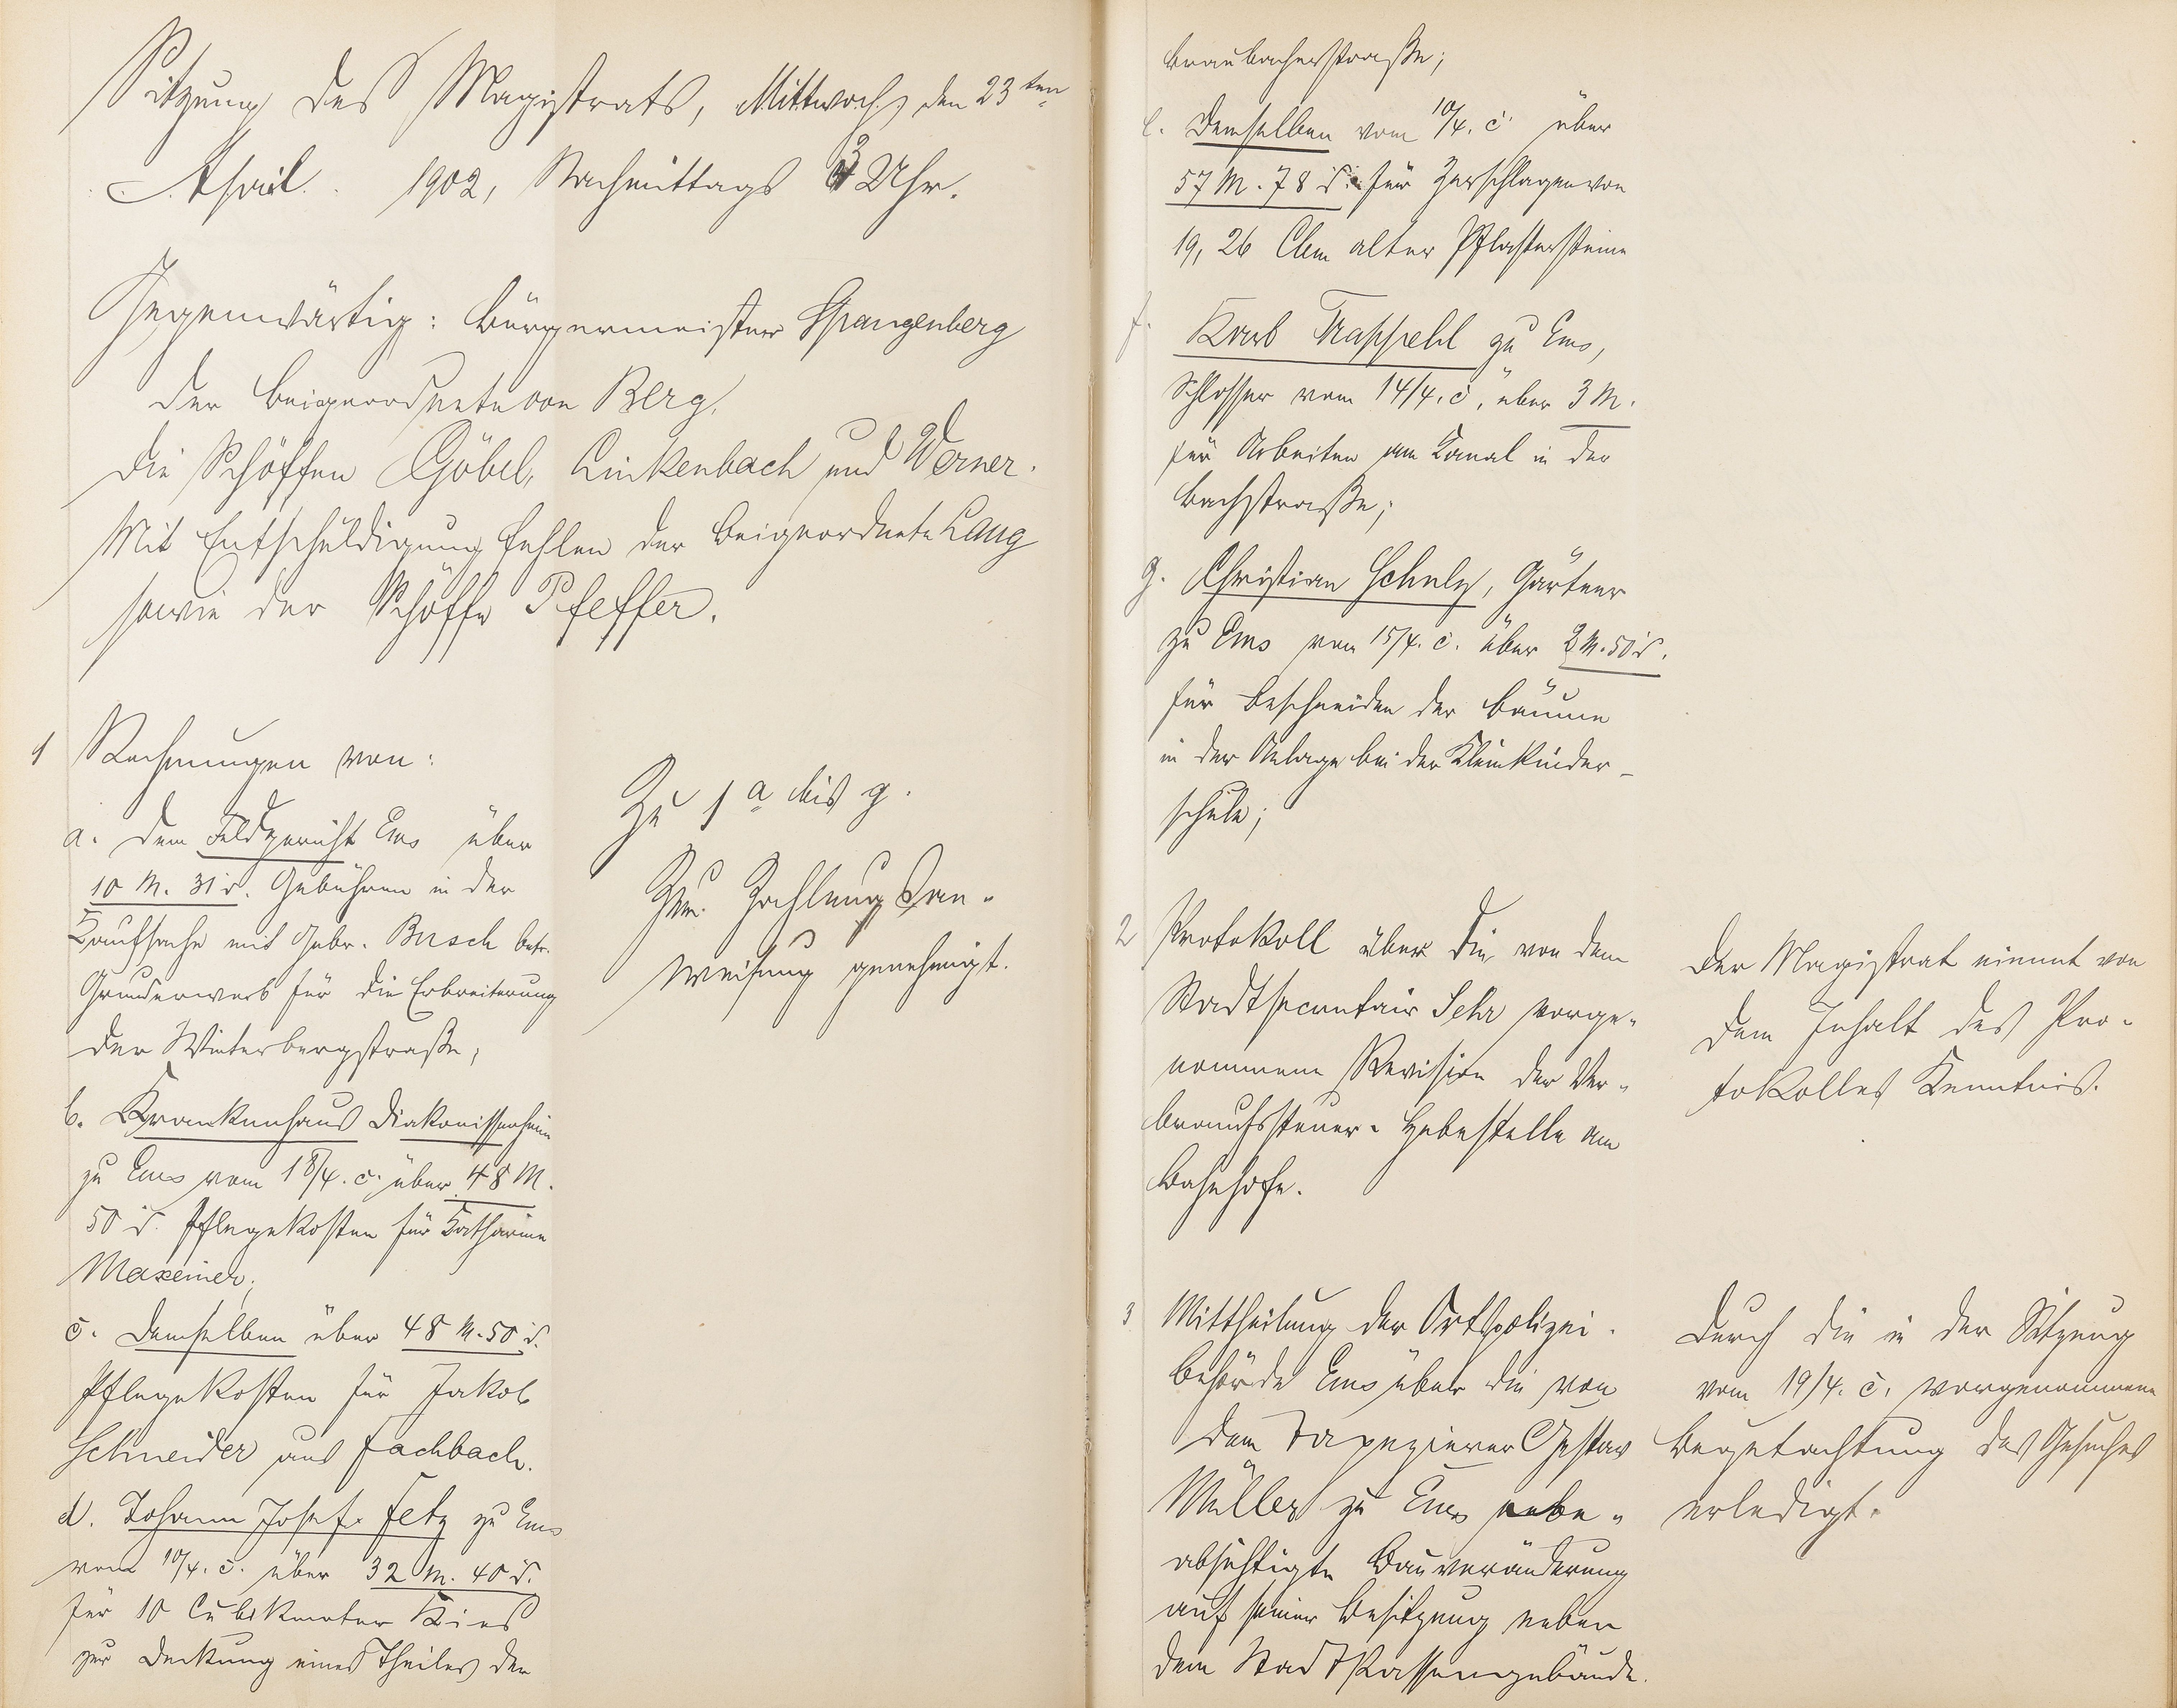 Sitzung des Magistrats, Mittwoch, den 23ten
April 1902, Nachmittags 3 Uhr.
Gegenwärtig: Bürgermeister Spangenberg
der Beigeordnete von Berg,
die Schöffen Göbel, Linkenbach und Werner.
Mit Entschuldigung fehlen der Beigeordnete Lang
sowie der Schöffe Pfeffer.
1 Rechnungen von:
a. dem Feldgericht Ems über
10 M. 31 d. Gebühren in der
Kaufsache mit Gebr. Busch betr.
Grunderwerb für die Erbreiterung
der Winterbergstraße;
b. Krankenhaus Diakonissenheim
zu Ems vom 18/4. c. über 48 M.
50 d. Pflegekosten für Katharine
Maxeiner;
c. Demselben über 48 M. 50 d.
Pflegekosten für Jakob
Schneider aus Fachbach.
d. Johann Josef Fetz zu Ems
vom 10/4. c. über 32 M. 40 d.
für 10 Cubikmeter Kies
zur Deckung eines Theiles der
Zu 1 a bis g.
Zur Zahlungsan-
weisung genehmigt.
Braubacherstraße;
e. Demselben vom 10/4. c. über
57 M. 78 d. für Zerschlagen von
19,26 Cbm alter Pflastersteine
f. Karl Trappehl zu Ems,
Schlosser vom 14/4. c. über 3 M.
für Arbeiten am Kanal in der
Bachstraße;
g. Christian Schulz, Gärtner
zu Ems vom 15/4. c. über 2 M. 50 d.
für Beschneiden der Bäume
in der Anlage bei der Kleinkinder-
schule;
2 Protokoll über die von dem
Stadtsecretair Sehr vorge-
nommene Revision der Ver-
brauchssteuer-Hebestelle am
Bahnhofe.
Der Magistrat nimmt von
dem Inhalt des Pro-
tokolles Kenntnis.
3 Mittheilung der Ortspolizei-
behörde Ems über die von
dem Tapezierer Gustav
Müller zu Ems be-
absichtigte Bauveränderung
auf seiner Besitzung neben
dem Stadtkassengebäude.
Durch die in der Sitzung
vom 19/4. c. vorgenommene
Begutachtung des Gesuches
erledigt.